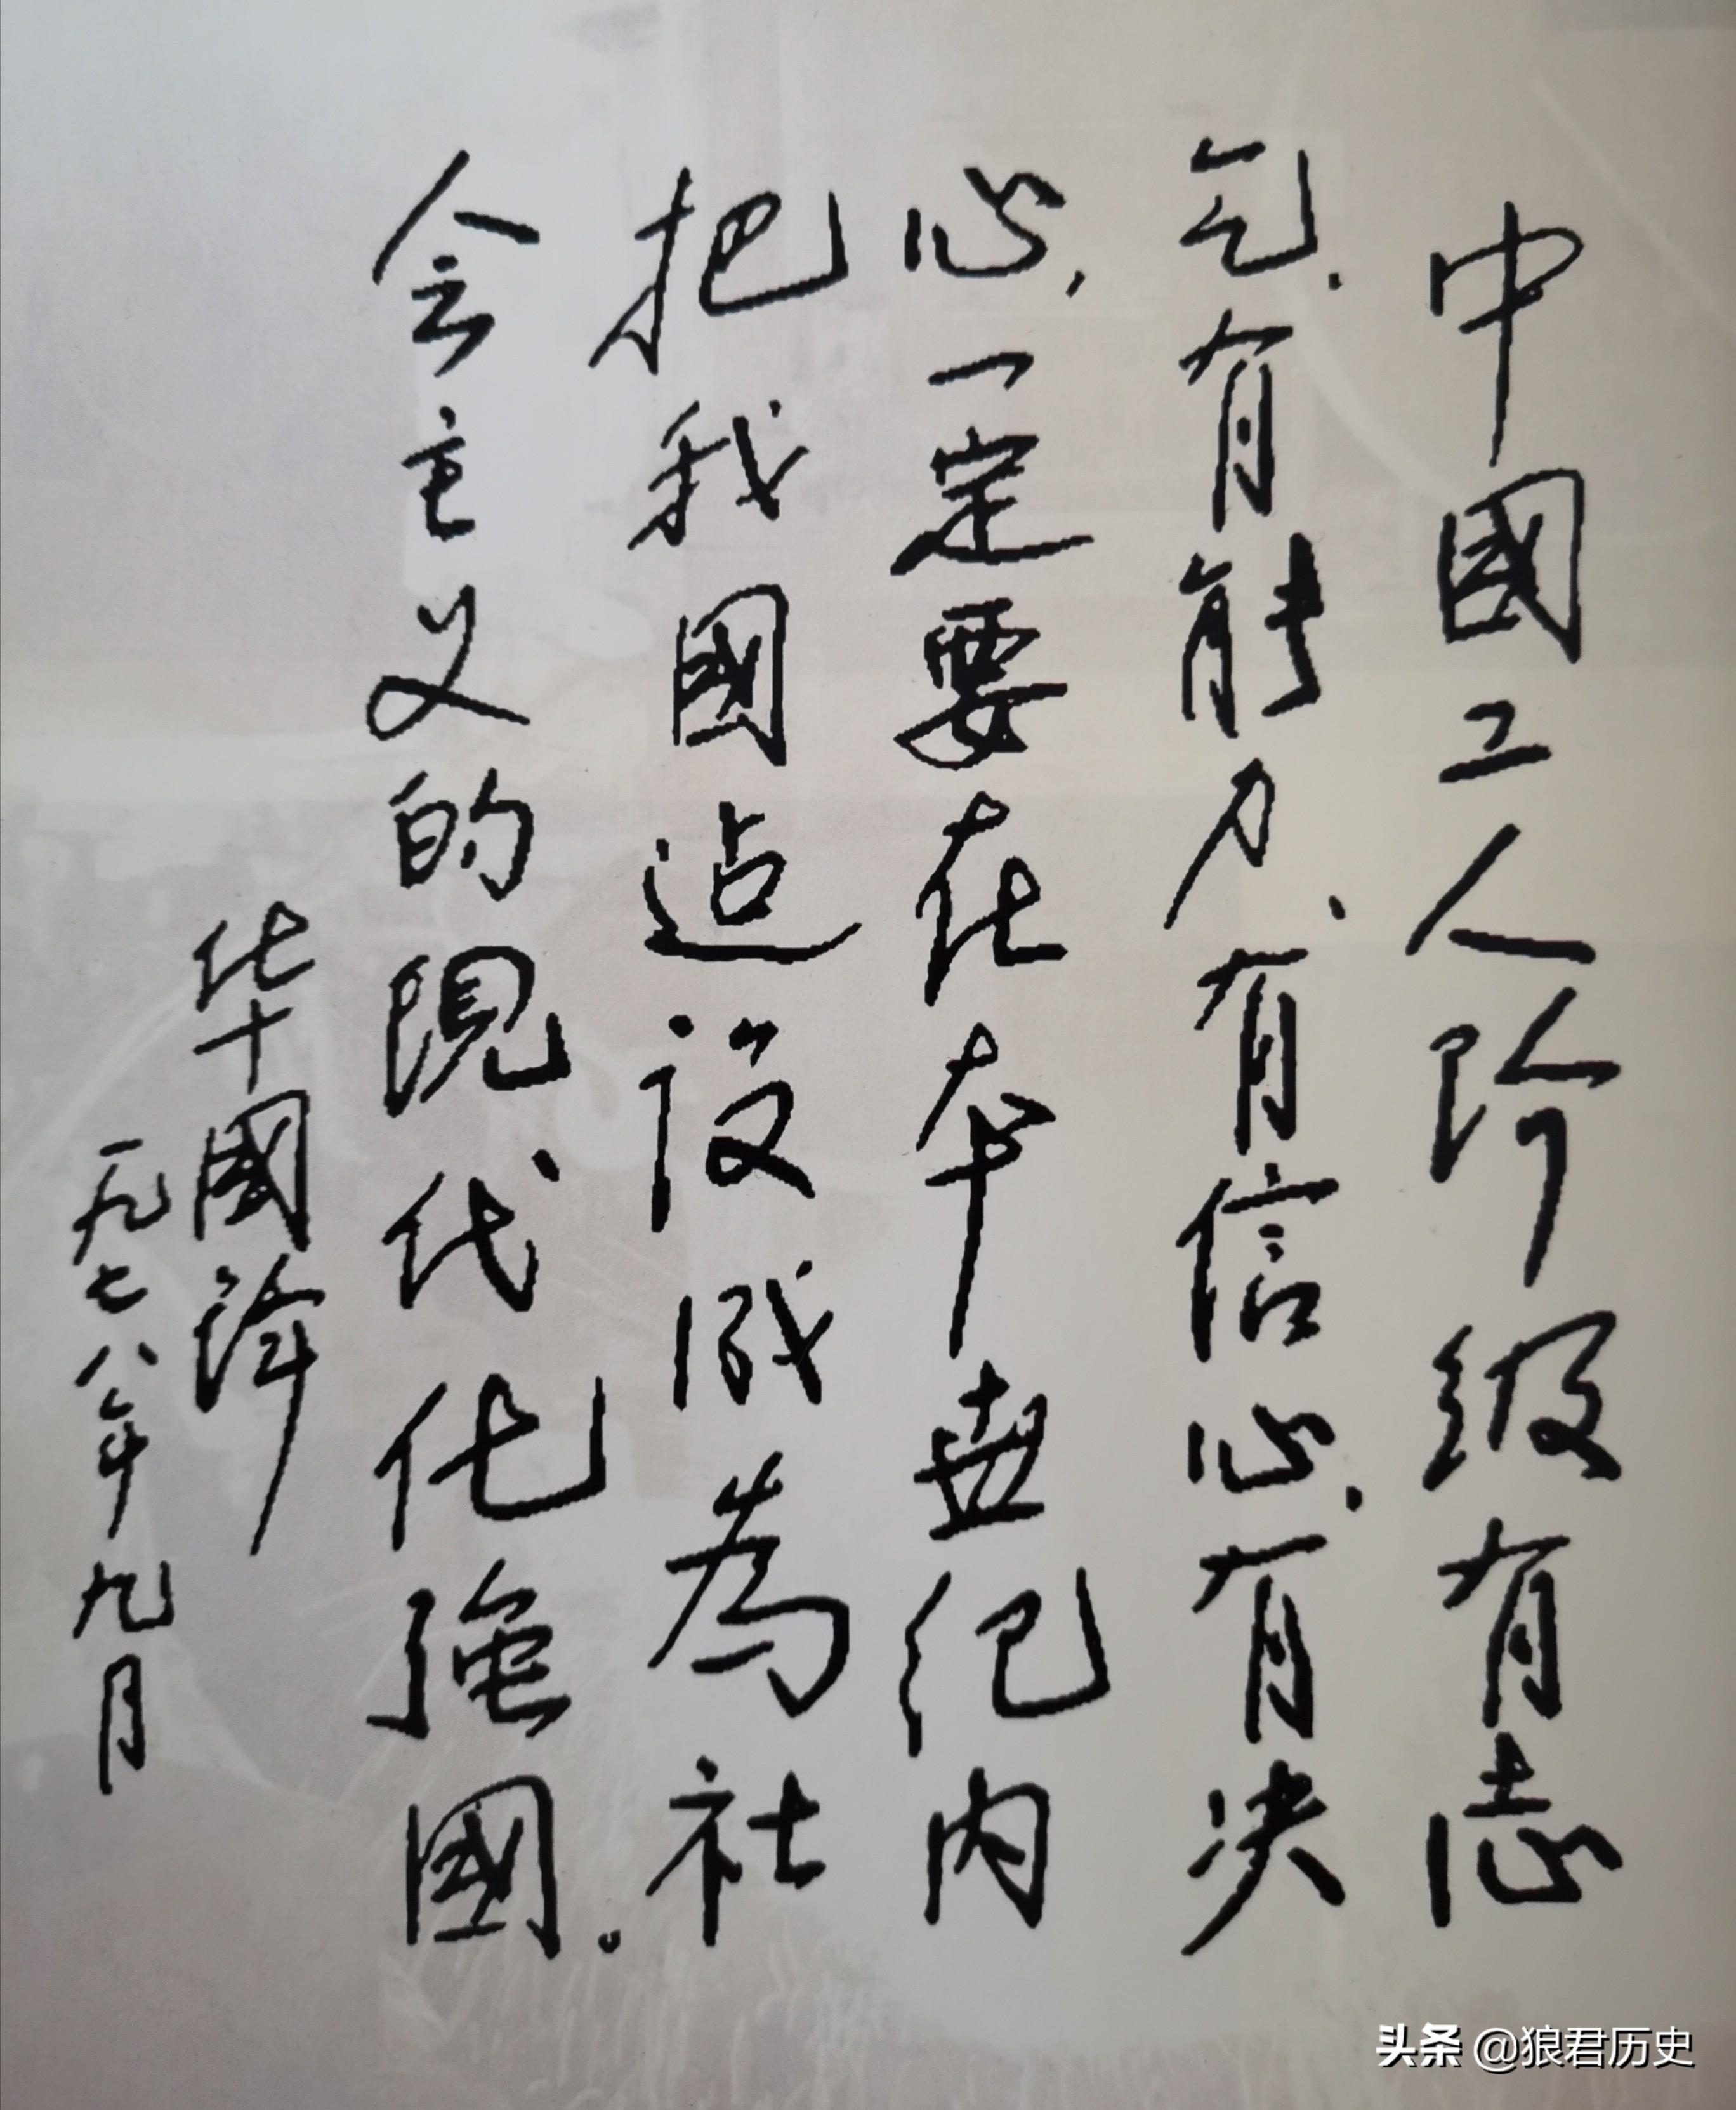 中國工人阶级有志
气、有能力、有信心、有决
心，一定要在本世纪内
把我國迠设成为社
会主义的现代化强國。
华國锋
一九七八年九月
头条 @狼君历史